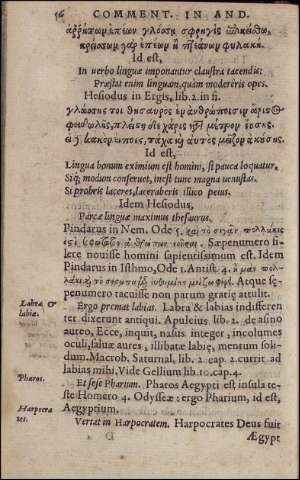 56 COMMENT. IN AND.
ἀῤῥήτων ἐπέων γλώσσῃ σφρηγὶς ἐπικείσθω,
κρείσσων γὰρ ἐπέων ἢ πλεόνων φυλακή.
Id est,
In verbo linguæ imponantur claustra tacendis:
Præstat enim linguam, quàm modereris opes.
Hesiodus in Ergis, lib. 2. in fi.
γλώσσης τοι θησαυρὸς ἐν ἀνθρώποισιν ἄριστ
φειδωλῆς, πλείστη δὲ χάρις κτ̃ μέτρον ἰούσης.
εἰ κακὸν εἴποις, τάχα κ' αὐτὸς μεῖζον ἀκούσῃς.
Id est,
Lingua bonum eximium est homini, si pauca loquatur,
Siq; modum conservet, inest tunc magna venustas.
Si probris laceres, laceraberis illico peius.
Idem Hesiodus,
Parcæ linguæ maximus thesaurus.
Pindarus in Nem. Ode 5. καὶ τὸ σιγᾶν πολλάκις
Sæpenumero si-
lere novisse homini sapientissimum est. Idem
Pindarus in Isthmo, Ode 1. Antist. 4. πολ-
λάκι Atque sę-
penumero tacuisse non parum gratię attulit.
Labra &
labia.
Ergo premat labias. Labra & labias indifferen-
ter dixerunt antiqui. Apuleius lib. 2. de asino
aureo, Ecce, inquit, nasus integer, incolumes
oculi, salvæ aures, illibatæ labię, mentum soli-
dum. Macrob. Saturnal, lib. 2. cap. 2. currit ad
labias mihi, Vide Gellium lib. 10. cap. 4.
Pharos.
Et sese Pharium. Pharos Aegypti est insula te-
ste Homero 4. Odysseæ: ergo Pharium, id est,
Aegyptium.
Harpocra
tes.
Vertat in Harpocratem. Harpocrates Deus fuit
D Ægypt